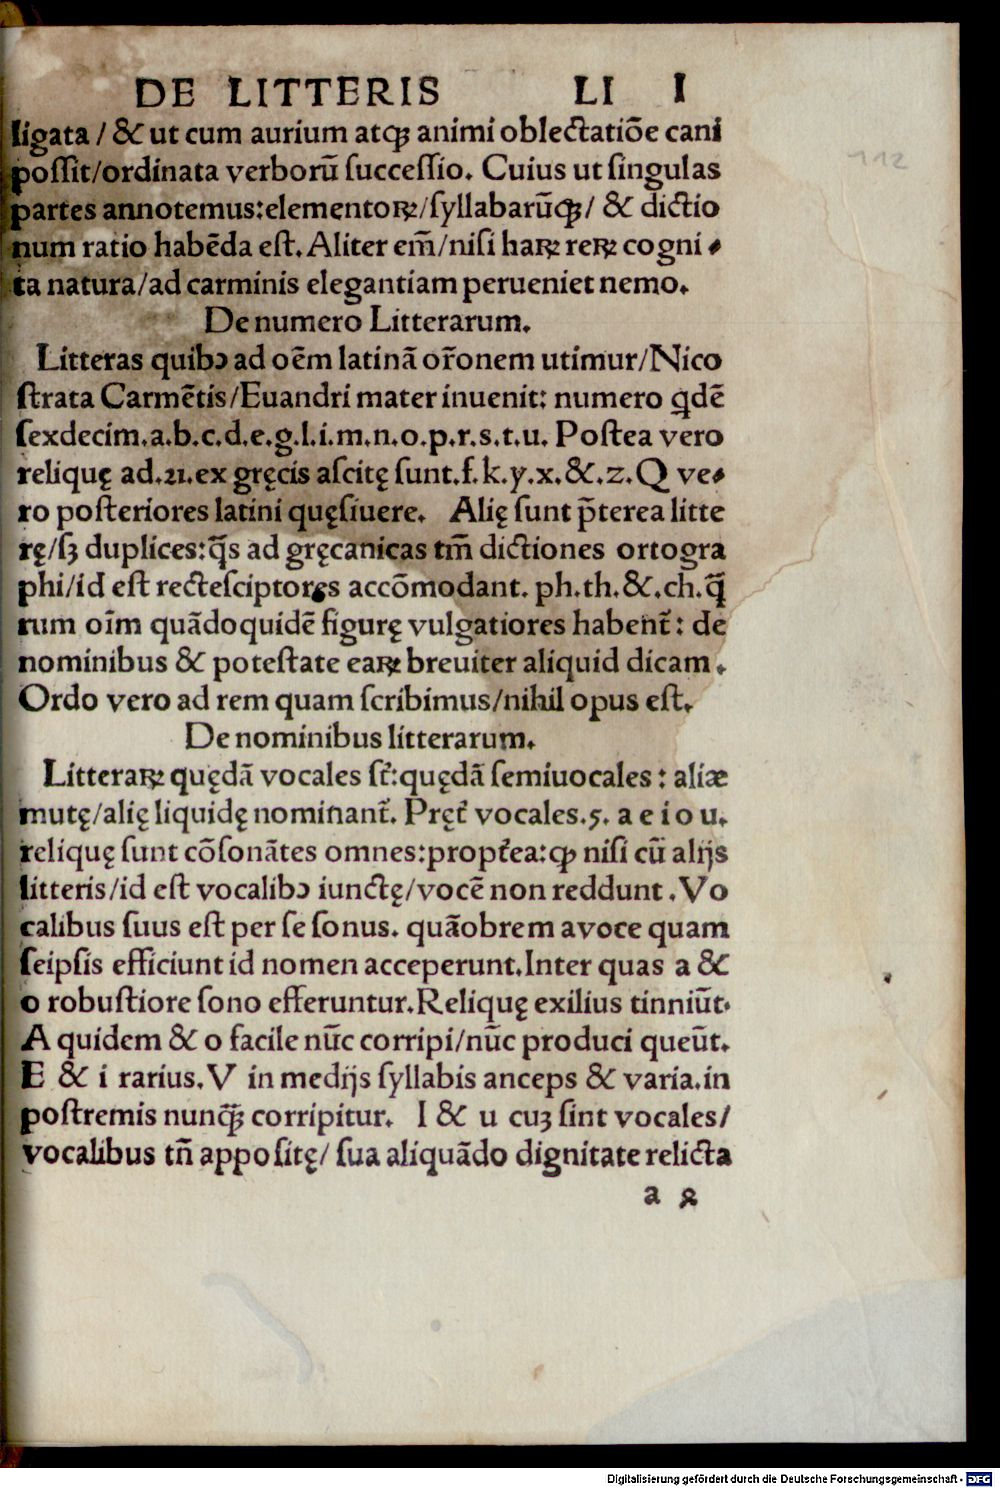 DE LITTERIS LI I
112
ligata / & ut cum aurium atqꝫ animi oblectatiōe cani
poſſit/ordinata verborū ſucceſſio. Cuius ut ſingulas
partes annotemus:elementoꝝ/ſyllabarūqꝫ/ & dictio
num ratio habēda eſt. Aliter em̄/niſi haꝝ reꝝ cogni-
ta natura/ad carminis elegantiam perueniet nemo.
De numero Litterarum.
Litteras quibꝰ ad oēm latinā or̄onem utimur/Nico
ſtrata Carmētis/Euandri mater inuenit: numero qdē
ſexdecim.a.b.c.d.e.g.l.i.m.n.o.p.r.s.t.u. Poſtea vero
reliquę ad.21.ex gręcis aſcitę ſunt.f.k.y.x.&.z.Q ve-
ro poſteriores latini quęſiuere. Alię ſunt p̄terea litte
rę/ſꝫ duplices:q̄s ad gręcanicas tm̄ dictiones ortogra
phi/id eſt recteſciptores accōmodant. ph.th.&.ch.q̄
rum oīm quādoquidē figurę vulgatiores habent̄: de
nominibus & poteſtate eaꝝ breuiter aliquid dicam.
Ordo vero ad rem quam ſcribimus/nihil opus eſt.
De nominibus litterarum.
Litteraꝝ quędā vocales ſt̄:quędā ſemiuocales: aliæ
mutę/alię liquidę nominant̄. Pręt̄ vocales.5. a e i o u.
reliquę ſunt cōſonātes omnes:propt̄ea:ꝙ niſi cū alijs
litteris/id eſt vocalibꝰ iunctę/vocē non reddunt. Vo
calibus ſuus eſt per ſe ſonus. quāobrem a voce quam
ſeipſis efficiunt id nomen acceperunt.Inter quas a &
o robuſtiore ſono efferuntur.Reliquę exilius tinniūt.
A quidem & o facile nūc corripi/nūc produci queūt.
E & i rarius. V in medijs ſyllabis anceps & varia.in
poſtremis nunq̄ꝫ corripitur. I & u cuꝫ ſint vocales/
vocalibus tn̄ appoſitę/ ſua aliquādo dignitate relicta
a 2
Digitalisierung gefördert durch die Deutsche Forschungsgemeinschaft - DFG